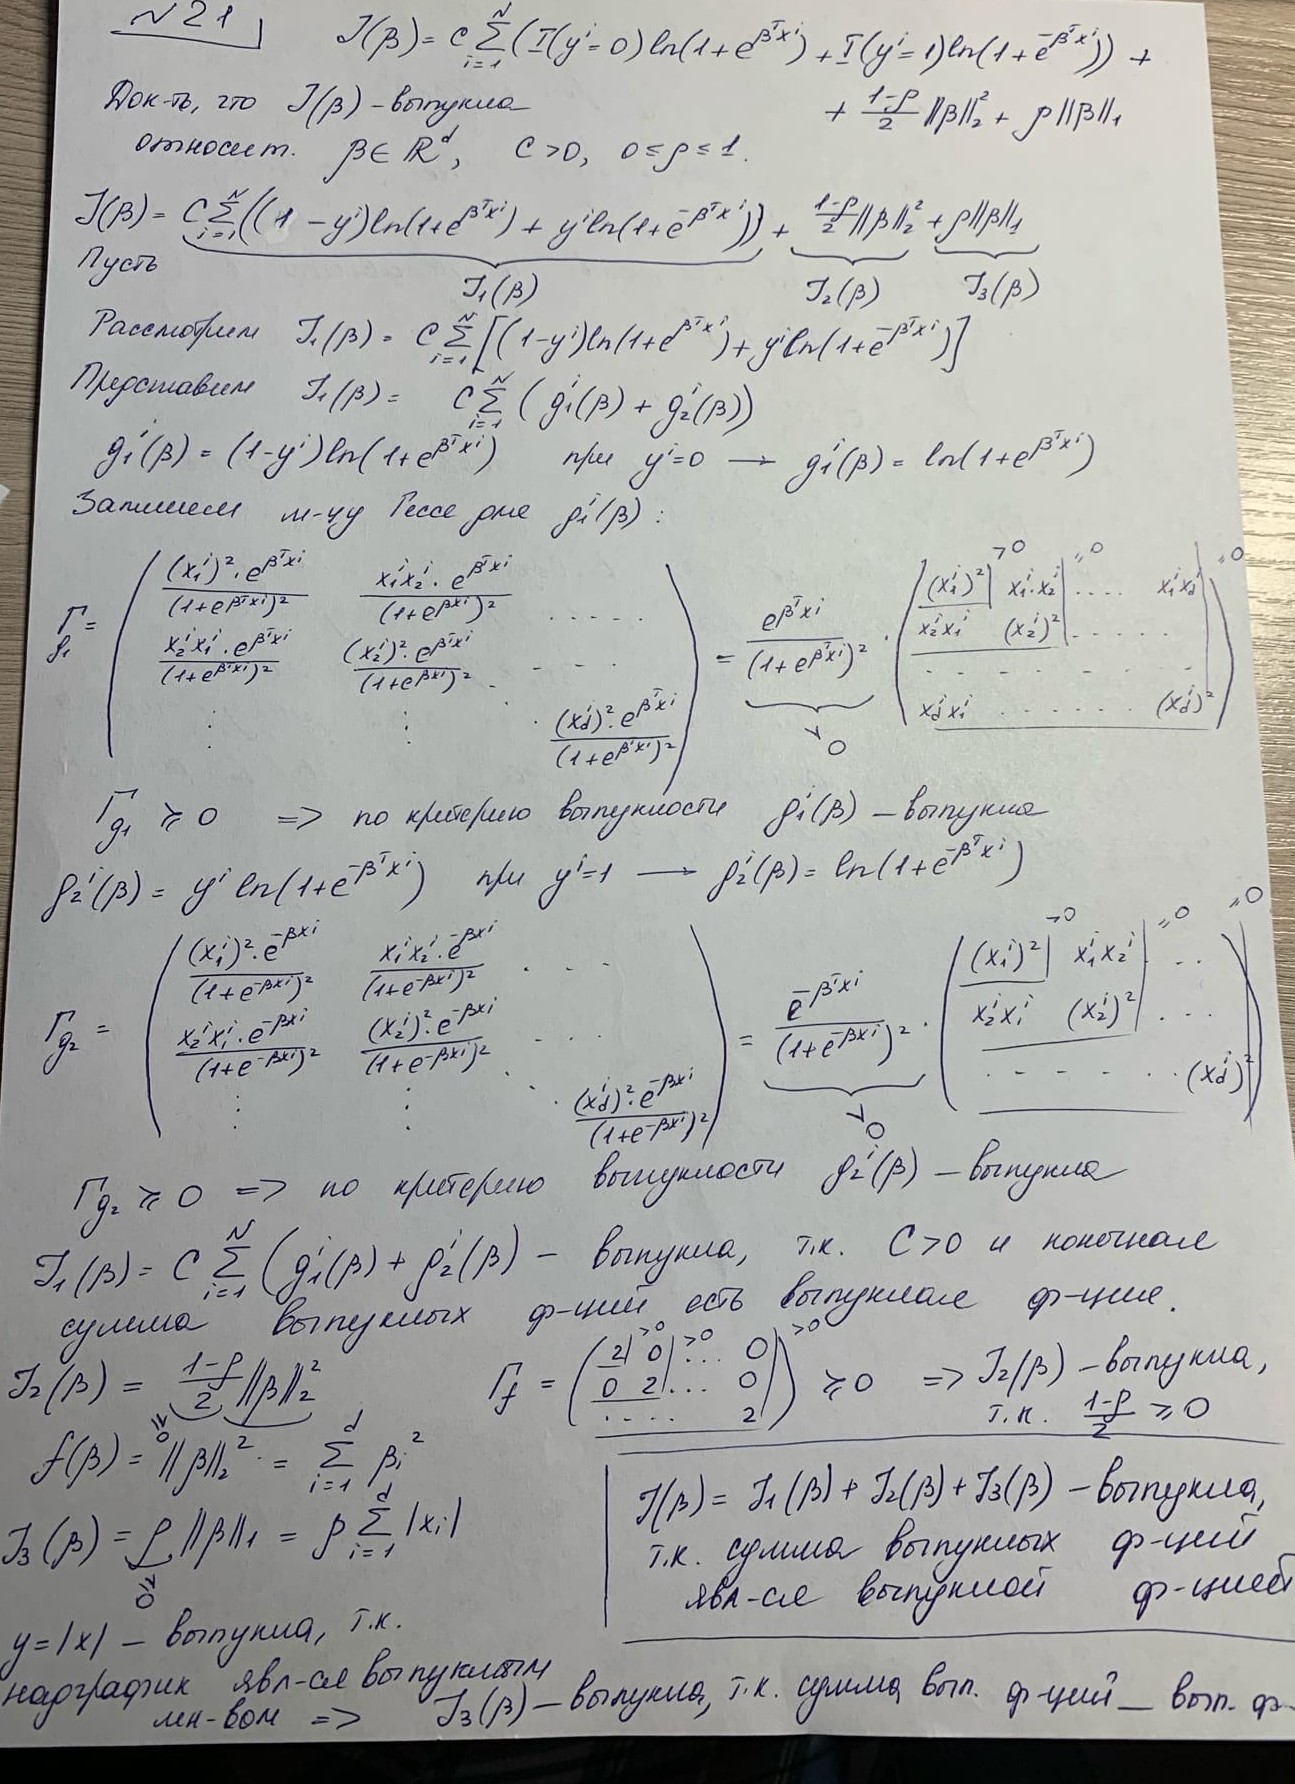 N21
J(β) = C∑_{i=1}^{N}(I(yⁱ=0)ln(1+e^{βᵀxⁱ}) + I(yⁱ=1)ln(1+e^{-βᵀxⁱ})) +
+ (1-ρ)/2 ||β||₂² + ρ||β||₁
Док-ть, что J(β) - выпукла
относит. β ∈ ℝᵈ, C>0, 0≤ρ≤1.
J(β) = C∑_{i=1}^{N}((1-yⁱ)ln(1+e^{βᵀxⁱ}) + yⁱln(1+e^{-βᵀxⁱ})) + (1-ρ)/2 ||β||₂² + ρ||β||₁
Пусть J₁(β) J₂(β) J₃(β)
Рассмотрим J₁(β) = C∑_{i=1}^{N}[(1-yⁱ)ln(1+e^{βᵀxⁱ}) + yⁱln(1+e^{-βᵀxⁱ})]
Представим J₁(β) = C∑_{i=1}^{N}(g₁ⁱ(β) + g₂ⁱ(β))
g₁ⁱ(β) = (1-yⁱ)ln(1+e^{βᵀxⁱ}) при yⁱ=0 → g₁ⁱ(β) = ln(1+e^{βᵀxⁱ})
Запишем м-цу Гессе для g₁ⁱ(β):
>0 =0 =0
(x₁ⁱ)²·e^{βᵀxⁱ}/(1+e^{βᵀxⁱ})² x₁ⁱx₂ⁱ·e^{βᵀxⁱ}/(1+e^{βxⁱ})² ..... (x₁ⁱ)² x₁ⁱ·x₂ⁱ .... x₁ⁱx_dⁱ
Γ_{g₁} = x₂ⁱx₁ⁱ·e^{βᵀxⁱ}/(1+e^{βᵀxⁱ})² (x₂ⁱ)²·e^{βᵀxⁱ}/(1+e^{βxⁱ})² ... = e^{βᵀxⁱ}/(1+e^{βᵀxⁱ})² · x₂ⁱx₁ⁱ (x₂ⁱ)² .....
⋮ ⋮ (x_dⁱ)²·e^{βᵀxⁱ}/(1+e^{βᵀxⁱ})² >0 x_dⁱx₁ⁱ ...... (x_dⁱ)²
Γ_{g₁} ≽ 0 => по критерию выпуклости g₁ⁱ(β) - выпукла
g₂ⁱ(β) = yⁱ ln(1+e^{-βᵀxⁱ}) при yⁱ=1 → g₂ⁱ(β) = ln(1+e^{-βᵀxⁱ})
>0 =0 =0
(x₁ⁱ)²·e^{-βxⁱ}/(1+e^{-βxⁱ})² x₁ⁱx₂ⁱ·e^{-βxⁱ}/(1+e^{-βxⁱ})² .... (x₁ⁱ)² x₁ⁱx₂ⁱ ..
Γ_{g₂} = x₂ⁱx₁ⁱ·e^{-βxⁱ}/(1+e^{-βxⁱ})² (x₂ⁱ)²·e^{-βxⁱ}/(1+e^{-βxⁱ})² ... = e^{-βᵀxⁱ}/(1+e^{-βxⁱ})² · x₂ⁱx₁ⁱ (x₂ⁱ)² ...
⋮ ⋮ (x_dⁱ)²·e^{-βxⁱ}/(1+e^{-βxⁱ})² >0 ...... (x_dⁱ)²
Γ_{g₂} ≽ 0 => по критерию выпуклости g₂ⁱ(β) - выпукла
J₁(β) = C∑_{i=1}^{N}(g₁ⁱ(β) + g₂ⁱ(β) - выпукла, т.к. C>0 и конечная
сумма выпуклых ф-ций есть выпуклая ф-ция.
J₂(β) = (1-ρ)/2 ||β||₂² ≥0
Γ_f = (2 0 ... 0 / 0 2 ... 0 / .... 2) >0 >0 >0 ≽ 0 => J₂(β) - выпукла,
т.к. (1-ρ)/2 ≥ 0
f(β) = ||β||₂² = ∑_{i=1}^{d} βᵢ²
J₃(β) = ρ||β||₁ = ρ∑_{i=1}^{d}|xᵢ|
≥0
J(β) = J₁(β) + J₂(β) + J₃(β) - выпукла,
т.к. сумма выпуклых ф-ций
явл-ся выпуклой ф-цией
y=|x| - выпукла, т.к.
надграфик явл-ся выпуклым
мн-вом => J₃(β) - выпукла, т.к. сумма вып. ф-ций - вып. ф-